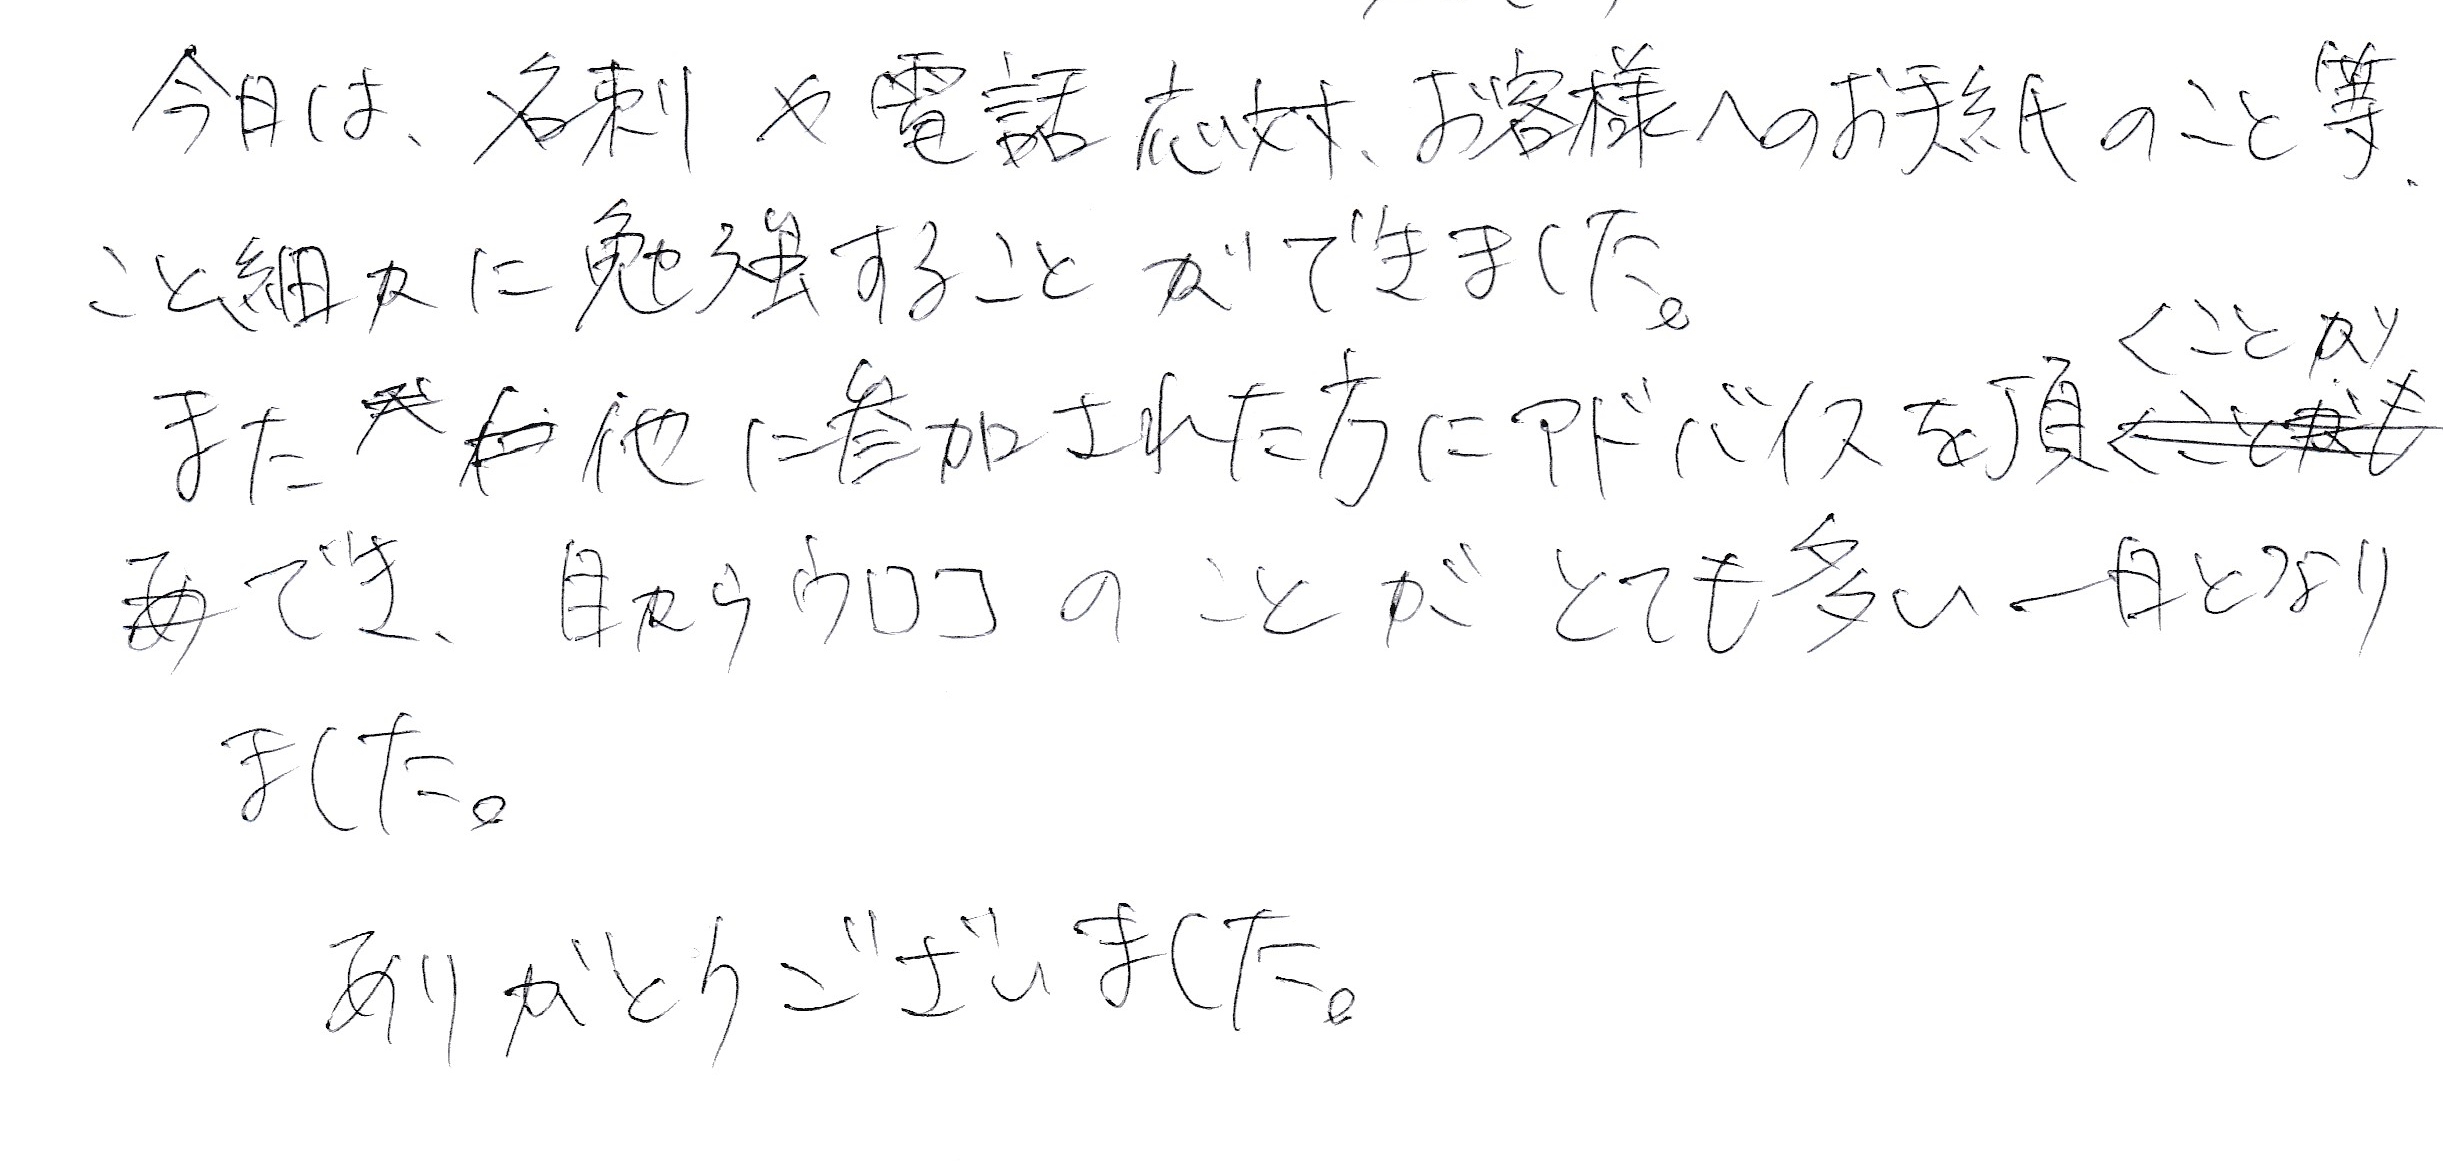 今日は、名刺や電話応対、お客様へのお手紙のこと等、
こと細かに勉強することができました。
また他に参加された方にアドバイスを頂くことが
でき、目からウロコのことがとても多い一日となり
ました。
ありがとうございました。